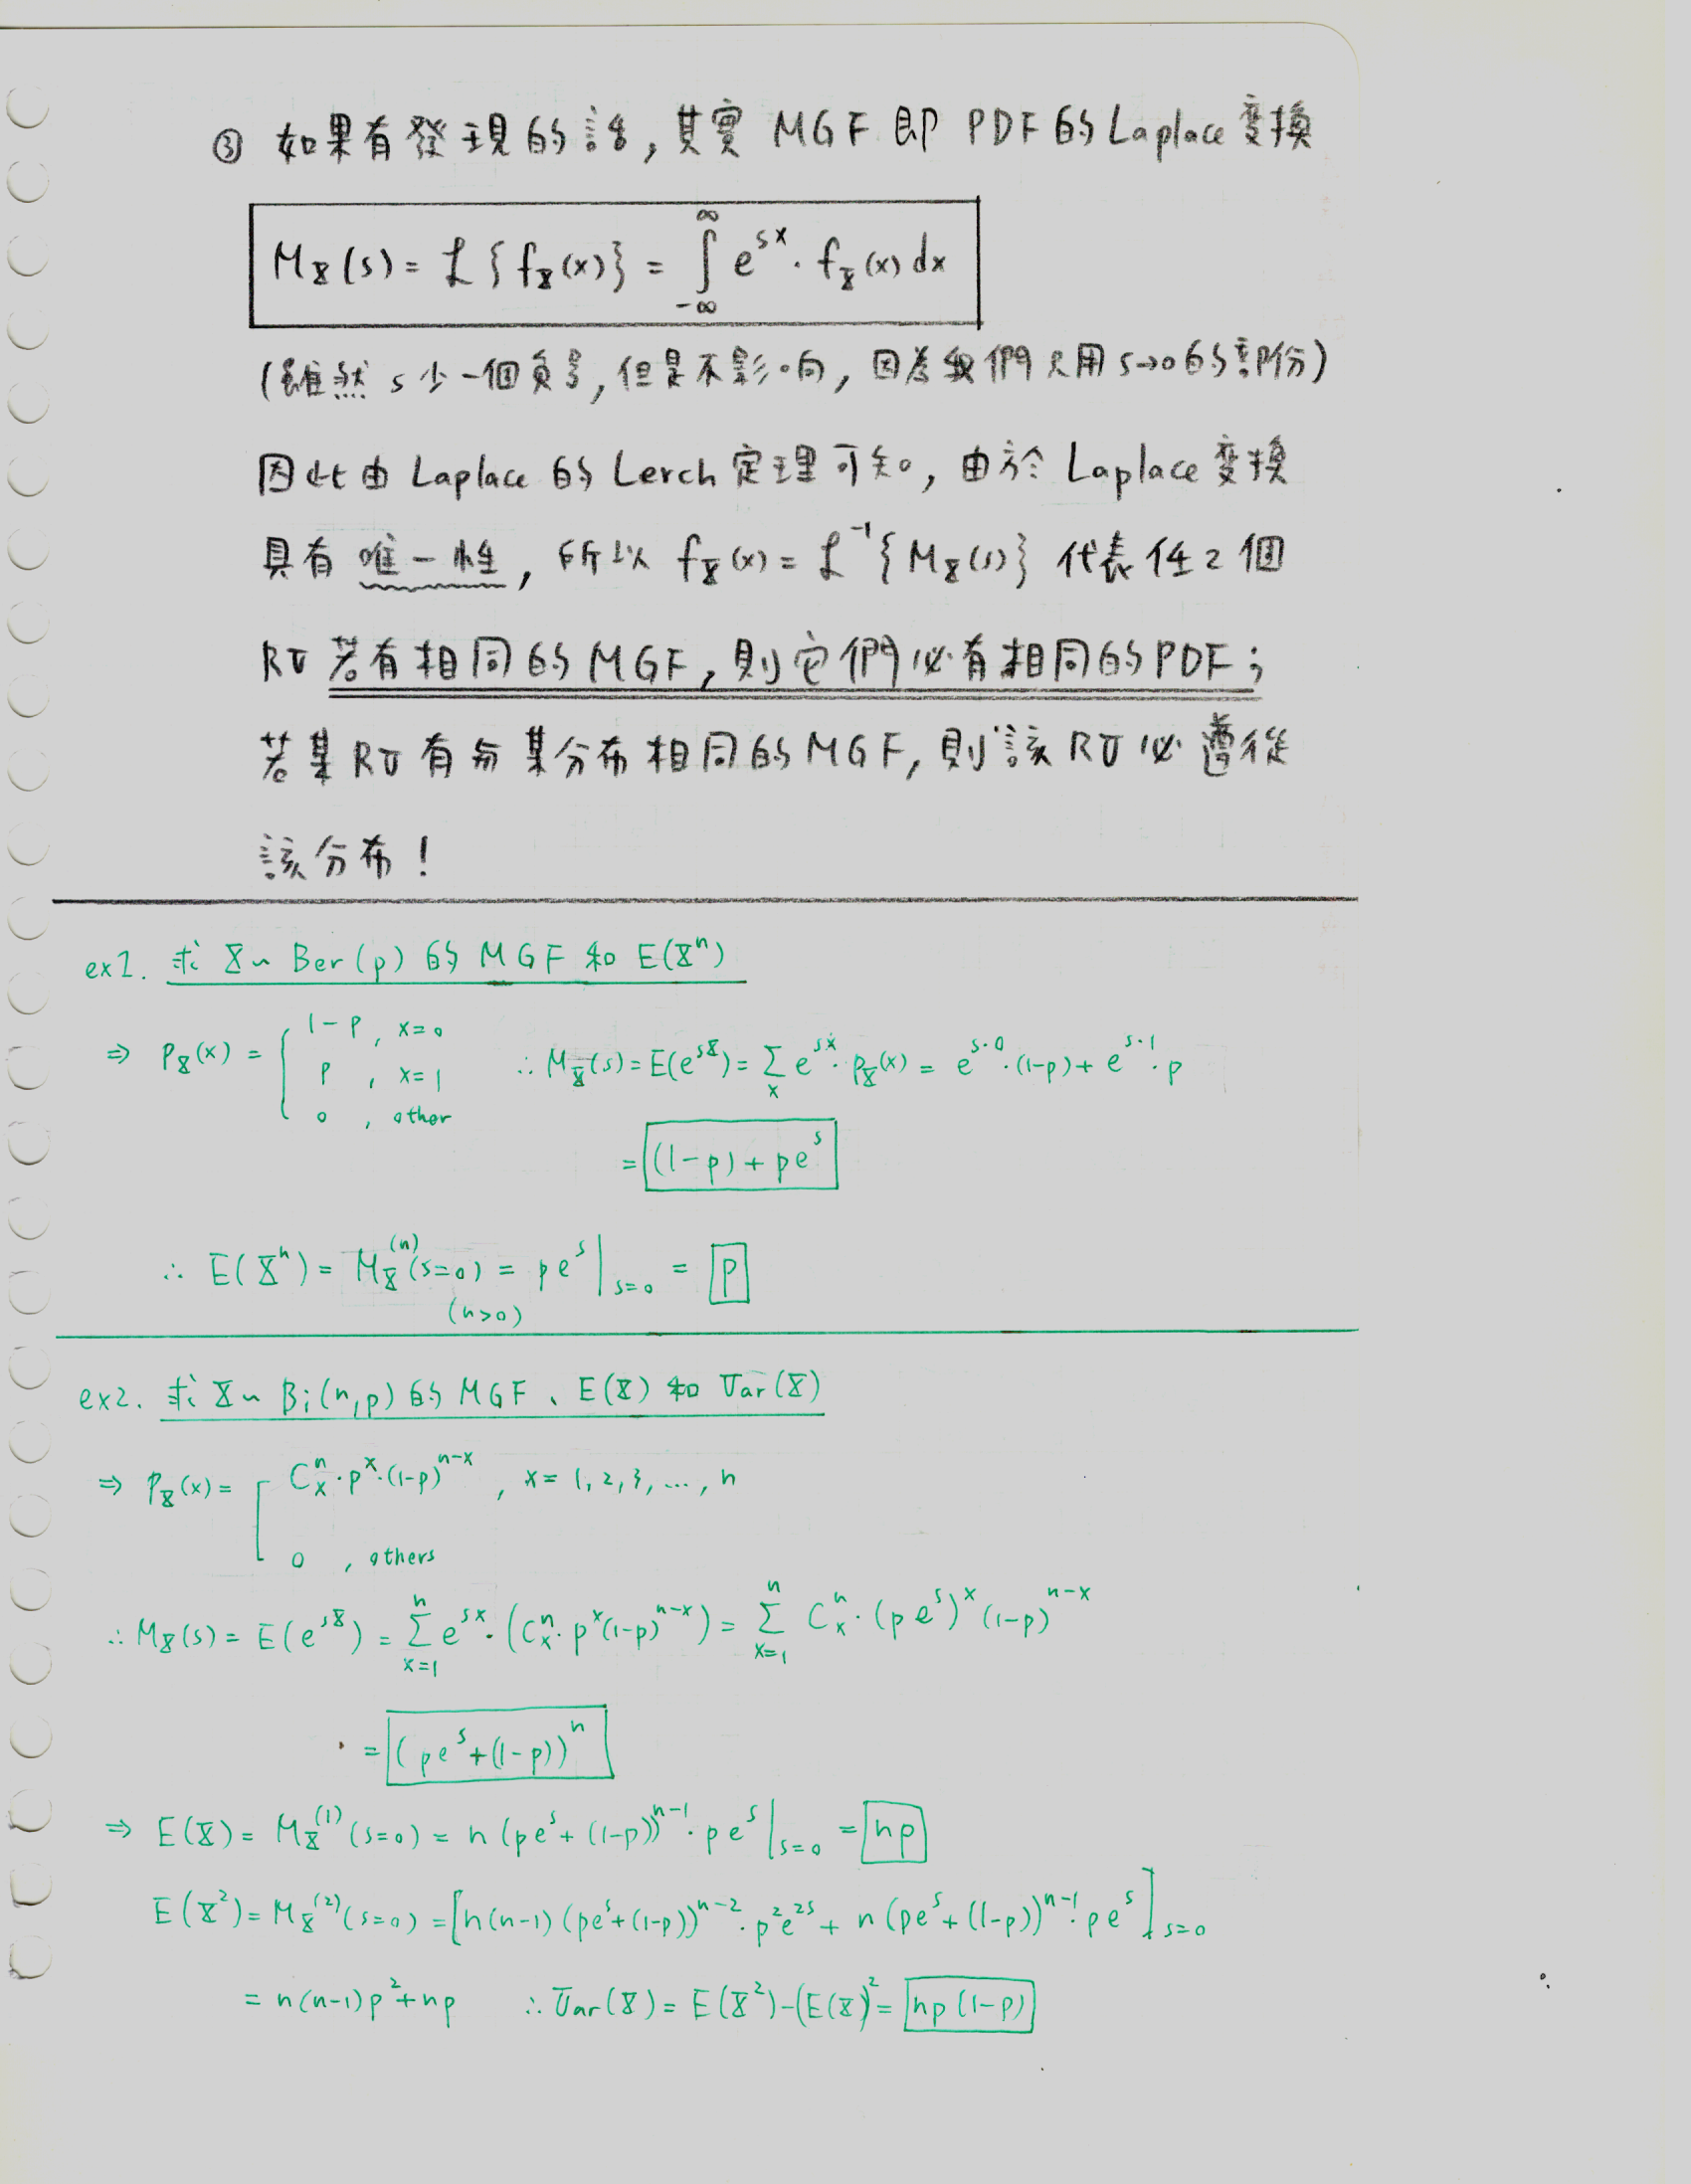 ③ 如果有發現的話，其實 MGF 即 PDF 的 Laplace 變換
M_X(s) = ℒ{f_X(x)} = ∫_{-∞}^{∞} e^{sx}·f_X(x) dx
(雖然 s 少一個負号，但是不影响，因為我們只用 s→0 的部份)
因此由 Laplace 的 Lerch 定理可知，由於 Laplace 變換
具有唯一性，所以 f_X(x) = ℒ^{-1}{M_X(s)} 代表任2個
RV 若有相同的 MGF，則它們必有相同的 PDF；
若某 RV 有与某分布相同的 MGF，則該 RV 必遵從
該分布！
ex1. 求 X~Ber(p) 的 MGF 和 E(X^n)
⇒ p_X(x) = { 1-p , x=0
p , x=1
0 , other
∴ M_X(s) = E(e^{sX}) = Σ_x e^{sx}·p_X(x) = e^{s·0}·(1-p) + e^{s·1}·p
= (1-p) + pe^s
∴ E(X^n) = M_X^{(n)}(s=0) = pe^s|_{s=0} = p
(n>0)
ex2. 求 X~Bi(n,p) 的 MGF、E(X) 和 Var(X)
⇒ p_X(x) = [ C_x^n·p^x·(1-p)^{n-x} , x = 1, 2, 3, ..., n
0 , others
∴ M_X(s) = E(e^{sX}) = Σ_{x=1}^{n} e^{sx}·(C_x^n·p^x(1-p)^{n-x}) = Σ_{x=1}^{n} C_x^n·(pe^s)^x (1-p)^{n-x}
= (pe^s+(1-p))^n
⇒ E(X) = M_X^{(1)}(s=0) = n(pe^s+(1-p))^{n-1}·pe^s|_{s=0} = np
E(X^2) = M_X^{(2)}(s=0) = [n(n-1)(pe^s+(1-p))^{n-2}·p^2e^{2s} + n(pe^s+(1-p))^{n-1}·pe^s]_{s=0}
= n(n-1)p^2+np ∴ Var(X) = E(X^2)-(E(X)^2 = np(1-p)